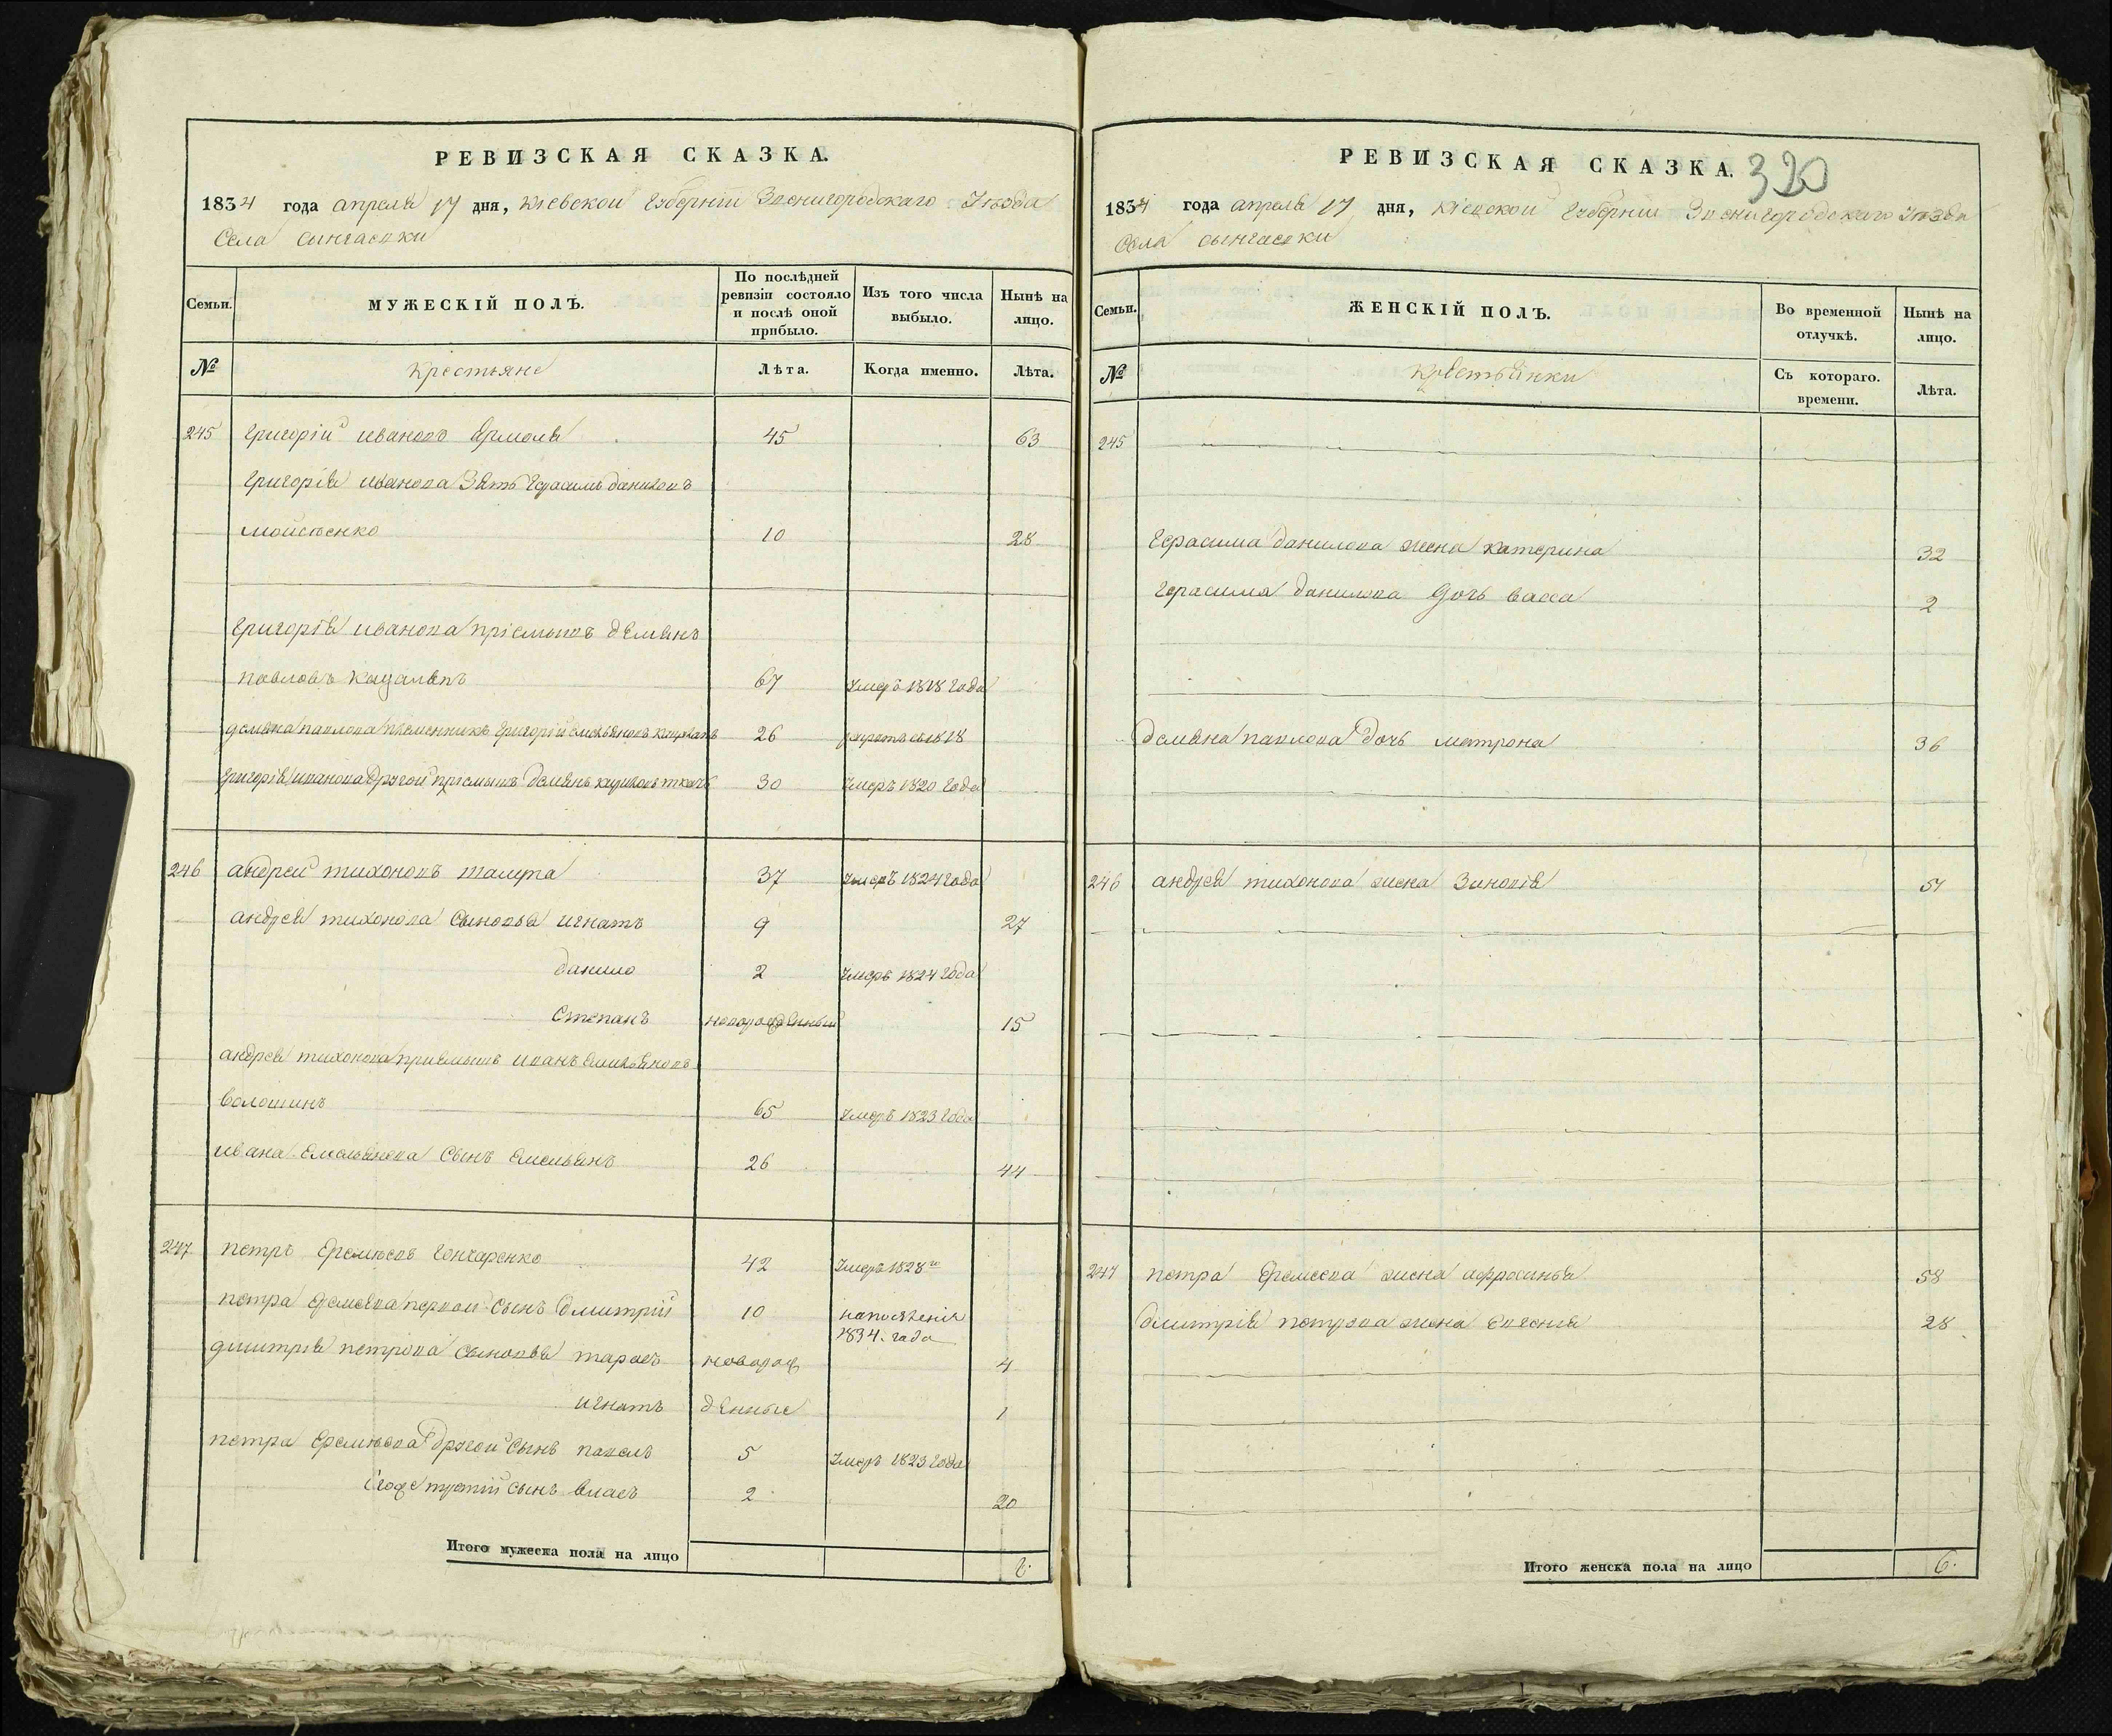 РЕВИЗСКАЯ СКАЗКА.
1834 года апреля 17 дня, Кіевской Губерніи Звенигородскаго Уѣзда
Села
Семьи.
МУЖЕСКІЙ ПОЛЪ.
По послѣдней ревизіи состояло и послѣ оной прибыло.
Изъ того числа выбыло.
Нынѣ на лицо.
№
Крестьяне
Лѣта.
Когда именно.
Лѣта.
245 Григорій Ивановъ Ярмола 45 63
Григорія Иванова Зять Герасимъ Даниловъ
Моисѣенко 10 28
Григорія Иванова пріемышъ Демянъ
Павловъ 67 Умеръ 1818 года
Демяна Павлова племенникъ Григорій Емельяновъ 26 1818
Григорія Иванова другой пріемышъ Демянъ ткачъ 30 Умеръ 1820 года
246 Андрей Тихоновъ 37 Умеръ 1824 года
Андрея Тихонова Сыновья Игнатъ 9 27
Данило 2 Умеръ 1824 года
Степанъ новорожденный 15
Андрея Тихонова приемышъ Иванъ Емильяновъ
Волошинъ 65 Умеръ 1823 года
Ивана Емельянова Сынъ Емельянъ 26 44
247 Петръ Еремѣевъ Гончаренко 42 Умеръ 1828 го
Петра Еремеева первой Сынъ Дмитрій 10 на поселеніи
1834. года
Дмитрія Петрова Сыновья Тарасъ новорож 4
Игнатъ денные 1
Петра Еремѣева другой Сынъ Павелъ 5 Умеръ 1823 года
Егоже третій Сынъ Власъ 2 20
Итого мужеска пола на лицо 8.
РЕВИЗСКАЯ СКАЗКА.
320
1834 года апреля 17 дня, Кіевской Губерніи Звенигородскаго Уѣзда
Села
Семьи.
ЖЕНСКІЙ ПОЛЪ.
Во временной отлучкѣ.
Нынѣ на лицо.
№
Крестьянки
Съ котораго. времени.
Лѣта.
245
Герасима Данилова жена Катерина 32
Герасима Данилова Дочь Васса 2
Демяна Павлова Дочь Матрона 36
246 Андрея Тихонова жена Зиновія 51
247 Петра Еремеева жена Афросинья 58
Дмитрія Петрова жена Евгенія 28
Итого женска пола на лицо 6.